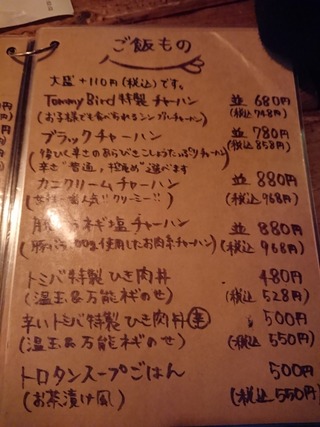 ご飯もの
大盛+110円(税込)です。
Tommy Bird 特製 チャーハン 並 680円
(お子様でも食べられるシンプルチャーハン) (税込748円)
ブラックチャーハン 並 780円
辛さのあらびきこしょうたっぷりチャーハン) (税込858円)
辛さ"普通" 選べます
カニクリームチャーハン 並 880円
人気"クリーミー") (税込968円)
ネギ塩チャーハン 並 880円
使用したお肉チャーハン) (税込968円)
トミバ特製 ひき肉丼 480円
(温玉&万能ネギのせ) (税込528円)
辛いトミバ特製ひき肉丼 辛 500円
(温玉&万能ネギのせ) (税込550円)
トロタンスープごはん 500円
(お茶漬け風) (税込550円)